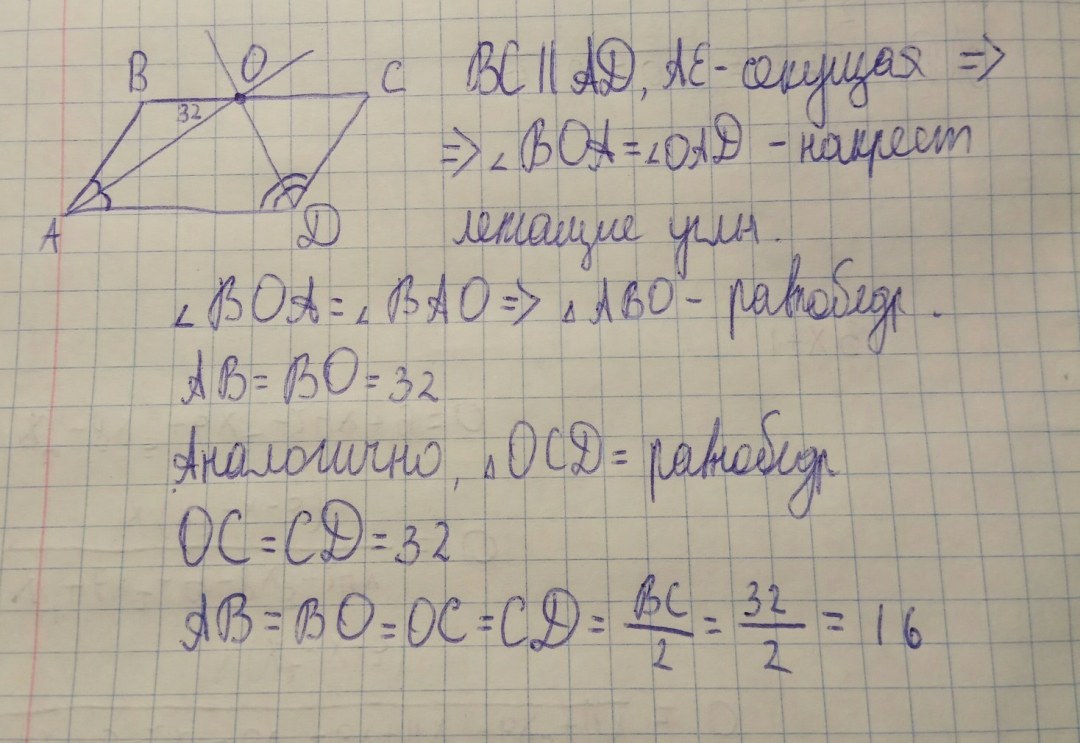 B O C
32
A D
BC || AD, AE - секущая =>
=> ∠BOA = ∠OAD - накрест
лежащие углы.
∠BOA = ∠BAO => △ABO - равнобедр.
AB = BO = 32
Аналогично, △OCD = равнобедр
OC = CD = 32
AB = BO = OC = CD = BC/2 = 32/2 = 16